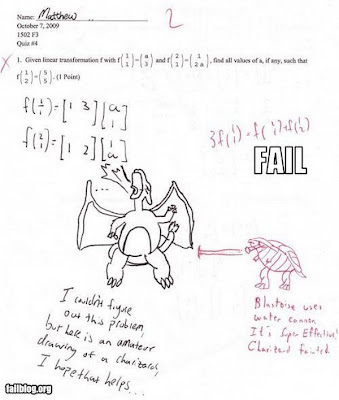 Name: Matthew
October 7, 2009
1502 F3
Quiz #4
2
X 1. Given linear transformation f with f(1 1)=(a 3) and f(2 1)=(1 2a), find all values of a, if any, such that
f(1 2)=(5 5). (1 Point)
f(1 1)=[1 3][a 1]
f(2 1)=[1 2][1 a]
3f(1 1)=f(2 1)+f(1 2)
FAIL
...
I couldn't figure
out this problem,
but here is an amateur
drawing of a charizard,
I hope that helps...
Blastoise uses
water cannon
It's Super Effective!
Charizard fainted.
failblog.org